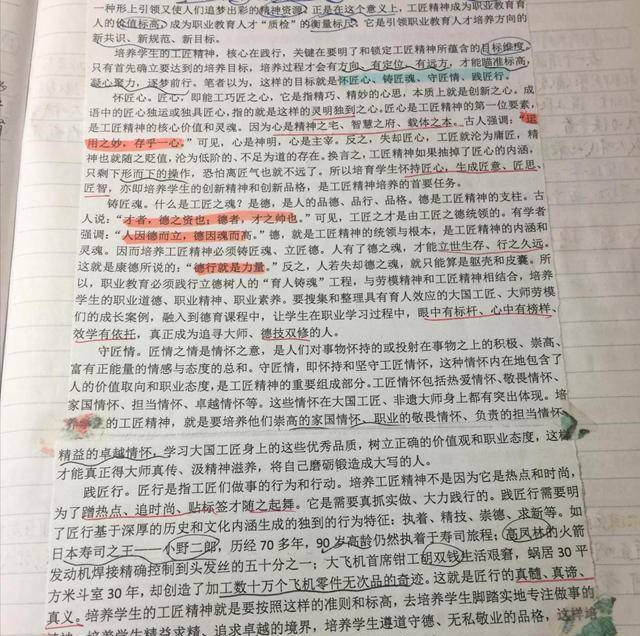 一种形上引领又使人们追梦出彩的精神资源。正是在这个意义上，工匠精神成为职业教育育
人的价值标高，成为职业教育人才“质检”的衡量标尺。它是引领职业教育人才培养方向的
新共识、新规范、新目标。
培养学生的工匠精神，核心在践行，关键在要明了和锁定工匠精神所蕴含的目标维度。
只有首先确立要达到的培养目标，培养过程才会有方向、有定位、有远方，才能瞄准标高，
凝心聚力，逐梦前行。笔者以为，这样的目标就是怀匠心、铸匠魂、守匠情、践匠行。
怀匠心。匠心，即能工巧匠之心，它是指精巧、精妙的心思，本质上就是创新之心。成
语中的匠心独运或独具匠心，指的就是这样的灵明独到之心。匠心是工匠精神的第一位要素，
是工匠精神的核心价值和灵魂。因为心是精神之宅、智慧之府、载体之本。古人强调：“运
用之妙，存乎一心。”可见，心是神明，心是主宰。反之，失却匠心，工匠就沦为庸匠，精
神也就随之贬值，沦为低阶的、不足为道的存在。换言之，工匠精神如果抽掉了匠心的内涵，
只剩下形而下的操作，恐怕离匠气也就不远了。所以培育学生怀持匠心，生成匠意、匠思、
匠智，亦即培养学生的创新精神和创新品格，是工匠精神培养的首要任务。
铸匠魂。什么是工匠之魂？是德，是人的品德、品行、品格。德是工匠精神的支柱。古
人说：“才者，德之资也；德者，才之帅也。”可见，工匠之才是由工匠之德统领的。有学者
强调：“人因德而立，德因魂而高。”德，就是工匠精神的统领与根本，是工匠精神的内涵和
灵魂。因而培养工匠精神必须铸匠魂、立匠德。人有了德之魂，才能立世生存、行之久远。
这就是康德所说的：“德行就是力量。”反之，人若失却德之魂，就只能算是躯壳和皮囊。所
以，职业教育必须践行立德树人的“育人铸魂”工程，与劳模精神和工匠精神相结合，培养
学生的职业道德、职业精神、职业素养。要搜集和整理具有育人效应的大国工匠、大师劳模
们的成长案例，融入到德育课程中，让学生在职业学习过程中，眼中有标杆、心中有榜样、
效学有依托，真正成为追寻大师、德技双修的人。
守匠情。匠情之情是情怀之意，是人们对事物怀持的或投射在事物之上的积极、崇高、
富有正能量的情感与态度的总和。守匠情，即怀持和坚守工匠情怀，这种情怀内在地包含了
人的价值取向和职业态度，是工匠精神的重要组成部分。工匠情怀包括热爱情怀、敬畏情怀、
家国情怀、担当情怀、卓越情怀等。这些情怀在大国工匠、非遗大师身上都有突出体现。培
养学生的工匠精神，就是要培养他们崇高的家国情怀、职业的敬畏情怀、负责的担当情怀、
精益的卓越情怀，学习大国工匠身上的这些优秀品质，树立正确的价值观和职业态度，这样
才能真正得大师真传、汲精神滋养，将自己磨砺锻造成大写的人。
践匠行。匠行是指工匠们做事的行为和行动。培养工匠精神不是因为它是热点和时尚，
为了蹭热点、追时尚、贴标签才随之起舞。它是需要真抓实做、大力践行的。践匠行需要明
了匠行基于深厚的历史和文化内涵生成的独到的行为特征：执着、精技、崇德、求新等。如
日本寿司之王——小野二郎，历经 70 多年，90 岁高龄仍然执着于寿司旅程；高凤林的火箭
发动机焊接精确控制到头发丝的五十分之一；大飞机首席钳工胡双钱生活艰窘，蜗居 30 平
方米斗室 30 年，却创造了加工数十万个飞机零件无次品的奇迹。这就是匠行的真髓、真谛、
真义。培养学生的工匠精神就是要按照这样的准则和标高，去培养学生脚踏实地专注做事的
培养学生精益求精、追求卓越的境界，培养学生遵道守德、无私敬业的品格，这样培